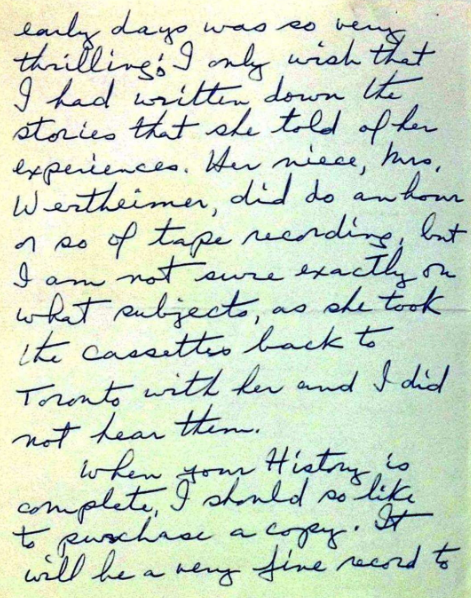 early days was so very
thrilling; I only wish that
I had written down the
stories that she told of her
experiences. Her niece, Mrs.
Wertheimer, did do an hour
or so of tape recording, but
I am not sure exactly on
what subjects, as she took
the cassettes back to
Toronto with her and I did
not hear them.
When your History is
complete, I should so like
to purchase a copy. It
will be a very fine record to